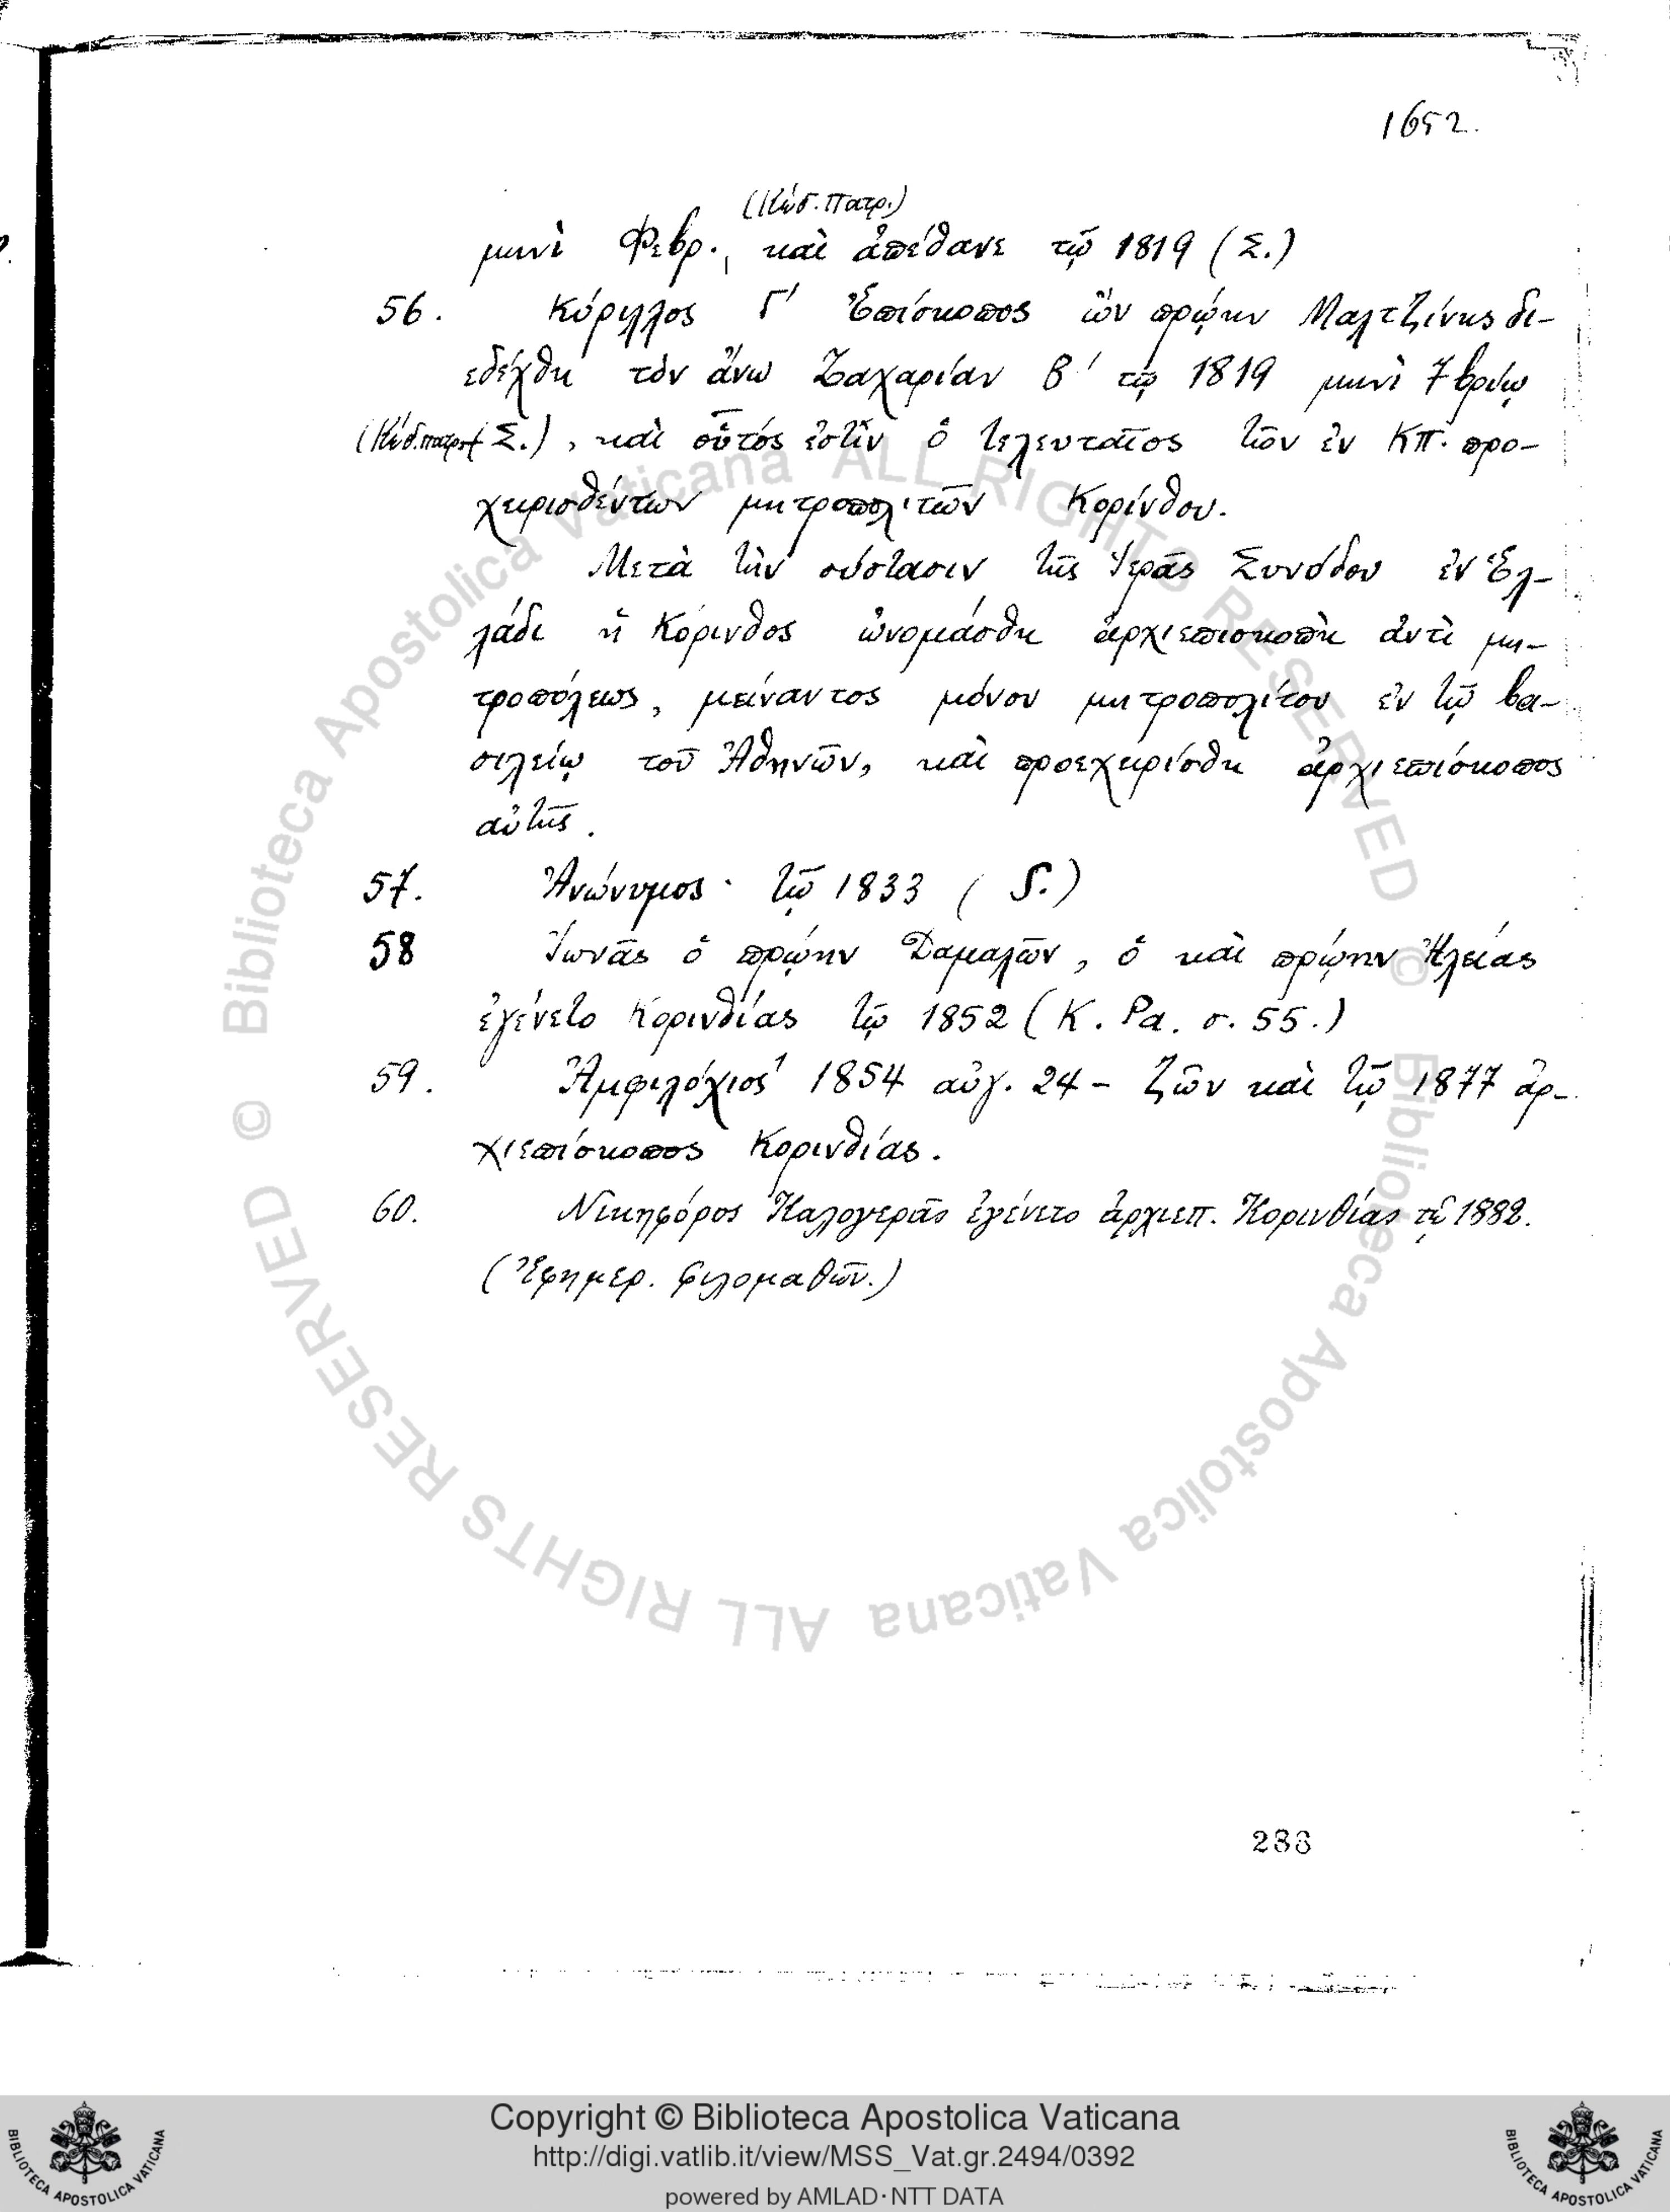 1652.
(Κώδ. Πατρ.)
μηνὶ Φεβρ., καὶ ἀπέθανε τῷ 1819 (Σ.)
56. Κύριλλος Γ' Ἐπίσκοπος ὢν πρῴην Μαλτζίνης δι-
εδέχθη τὸν ἄνω Ζαχαρίαν Β' τῷ 1819 μηνὶ 7βρίῳ
(Κώδ. πατρ. Σ.), καὶ οὗτός ἐστὶν ὁ τελευταῖος τῶν ἐν ΚΠ. προ-
χειρισθέντων μητροπολιτῶν Κορίνθου.
Μετὰ τὴν σύστασιν τῆς Ἱερᾶς Συνόδου ἐν Ἑλ-
λάδι ἡ Κόρινθος ὠνομάσθη ἀρχιεπισκοπὴ ἀντὶ μη-
τροπόλεως, μείναντος μόνου μητροπολίτου ἐν τῷ βα-
σιλείῳ τοῦ Ἀθηνῶν, καὶ προεχειρίσθη ἀρχιεπίσκοπος
αὐτῆς.
57. Ἀνώνυμος · τῷ 1833 ( S.)
58 Ἰωνᾶς ὁ πρῴην Δαμαλῶν, ὁ καὶ πρῴην Ἠλείας
ἐγένετο Κορινθίας τῷ 1852 (Κ. Ρα. σ. 55.)
59. Ἀμφιλόχιος 1854 αὐγ. 24 – ζῶν καὶ τῷ 1877 ἀρ-
χιεπίσκοπος Κορινθίας.
60. Νικηφόρος Καλογερᾶς ἐγένετο ἀρχιεπ. Κορινθίας τῷ 1882.
(Ἐφημερ. Φιλομαθῶν.)
288
© Biblioteca Apostolica Vaticana ALL RIGHTS RESERVED
© Biblioteca Apostolica Vaticana ALL RIGHTS RESERVED
Copyright © Biblioteca Apostolica Vaticana
http://digi.vatlib.it/view/MSS_Vat.gr.2494/0392
powered by AMLAD·NTT DATA
BIBLIOTECA APOSTOLICA VATICANA
BIBLIOTECA APOSTOLICA VATICANA